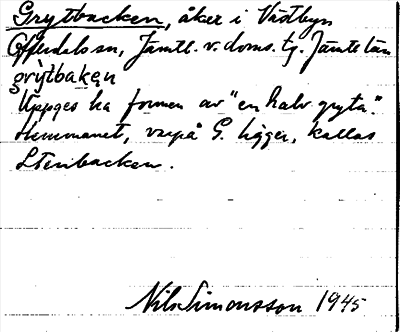 Grytbacken, åker i Västbyn
Offerdals sn, Jämtl. v. doms. tg. Jämtl. län
grỳtbak̥en
Uppges ha formen av "en halv gryta".
Hemmanet, varpå G. ligger, kallas
Stenbacken.
Nils Simonsson 1945